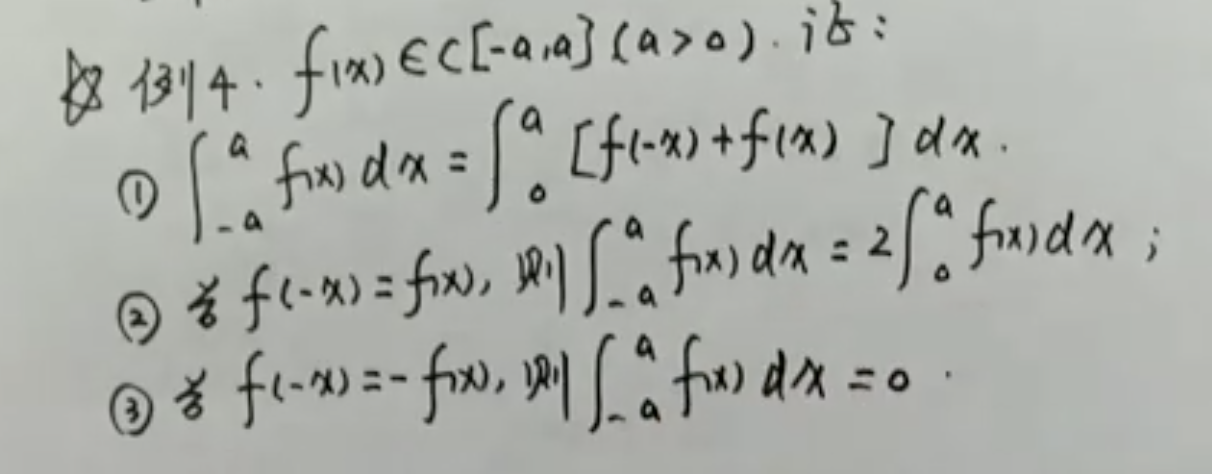 ☆ 例4. f(x)∈C[-a,a] (a>0). 证:
① ∫_{-a}^{a} f(x) dx = ∫_{0}^{a} [f(-x)+f(x)] dx.
② 若 f(-x)=f(x), 则 ∫_{-a}^{a} f(x) dx = 2∫_{0}^{a} f(x) dx;
③ 若 f(-x)=-f(x), 则 ∫_{-a}^{a} f(x) dx = 0.